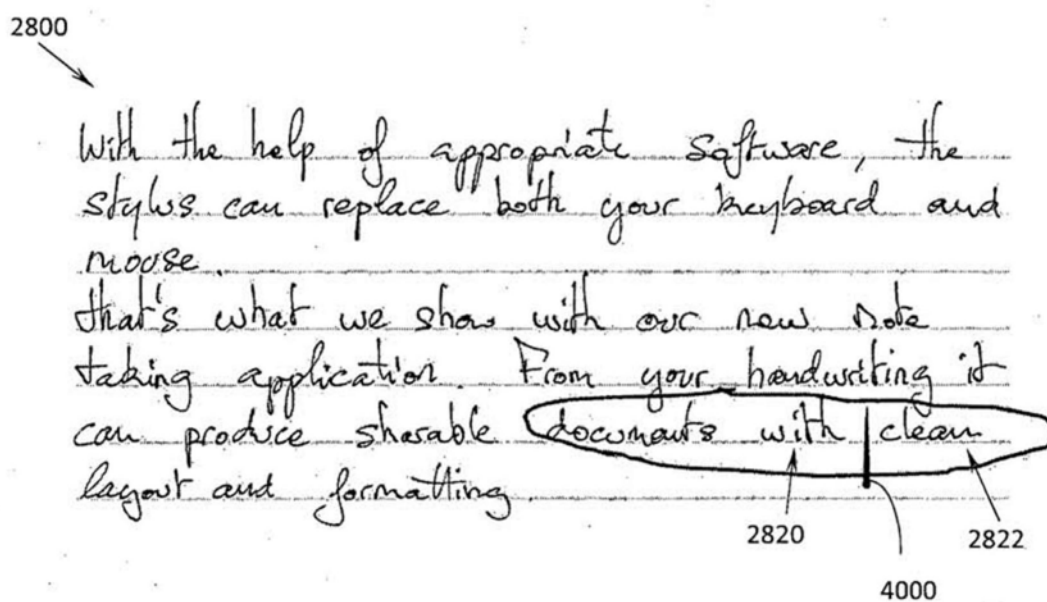 2800
With the help of appropriate software, the
stylus can replace both your keyboard and
mouse.
that's what we show with our new note
taking application. From your handwriting it
can produce sharable documents with clean
layout and formatting.
2820
2822
4000